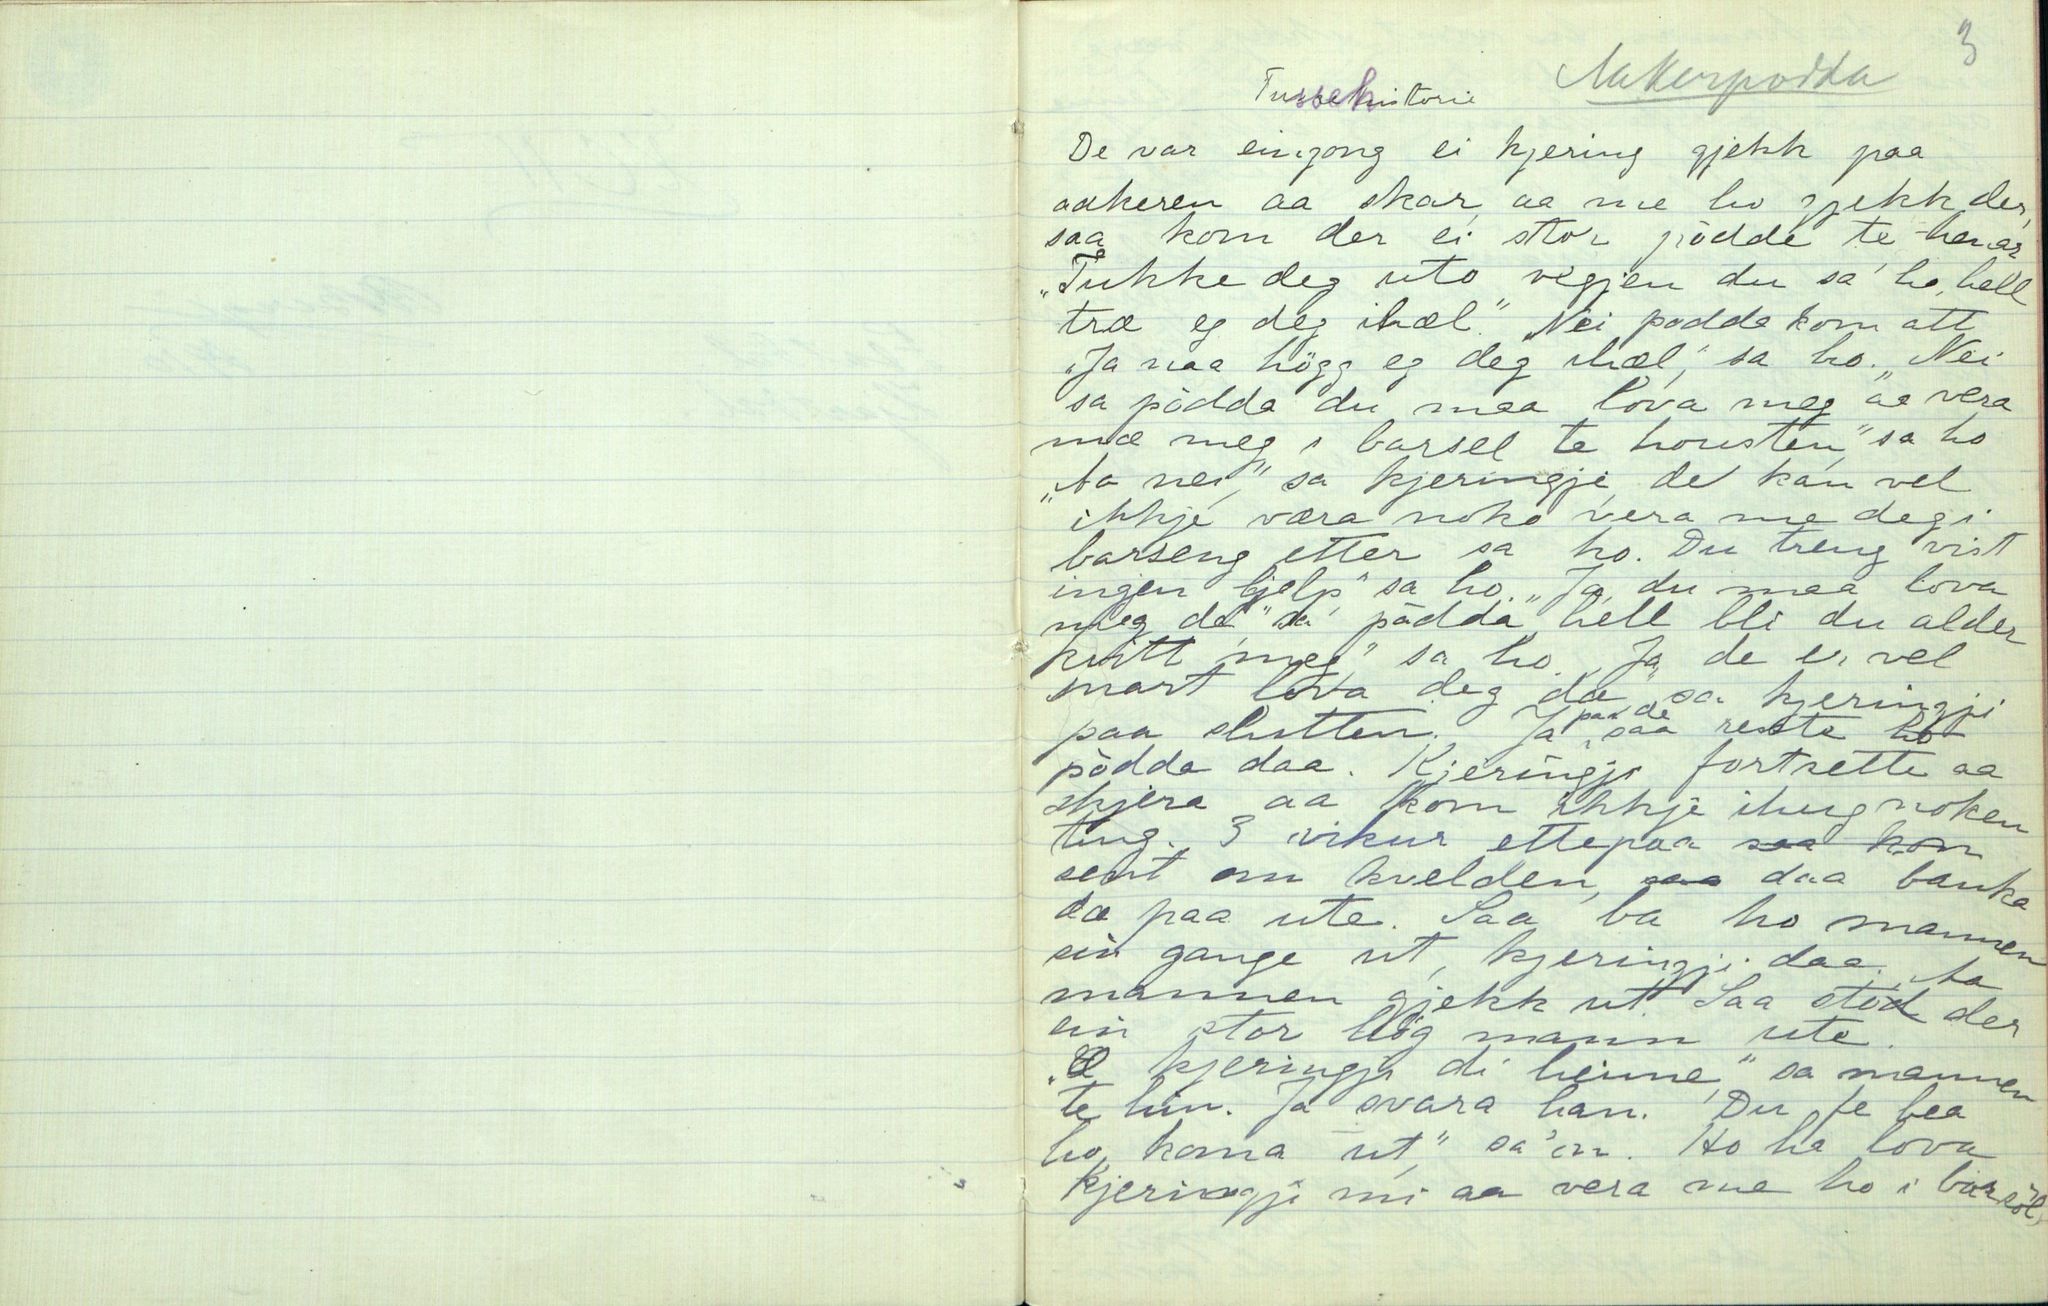 3
Aakerpodda
Tussehistorie
De var eingong ei kjering gjekk paa
aakeren aa skar, aa me ho gjekk der,
saa kom der ei stor pòdde te henar
"Tukke deg uto vegjen du sa' ho, hell
træ eg deg ihæl." Nei podda kom att
"Ja naa högg eg deg ihæl," sa ho. "Nei
sa pòdda du maa lova meg aa vera
mæ meg i barsel te housten," sa ho
"Aa nei," sa kjeringji, de kan vel
ikkje væra noko vera me deg i
barseng etter sa ho. Du treng vist
ingen hjelp" sa ho. "Ja, du maa lova
meg dæ" sa' pòdda, hell bli du alder
kvitt meg" sa ho. "Ja, de er vel
mast lova deg dæ" sa kjeringji
paa slutten. Ja paa de saa reiste ho
pòdda daa. Kjeringji fortsette aa
skjera aa kom ikkje ihug noken
ting. 3 vikur ettepaa saa kom
seint om kvelden, saa daa banka
dæ paa ute. Saa ba ho mannen
sin gange ut, kjeringji daa. Aa
mannen gjekk ut. Saa stod der
ein stor høg mann ute.
"Æ kjeringji di heime," sa mannen
te hin. Ja svara han. "Du fe bea
ho koma ut," sa'en. Ho ha lova
kjeringji mi aa vera me ho i barsöl,